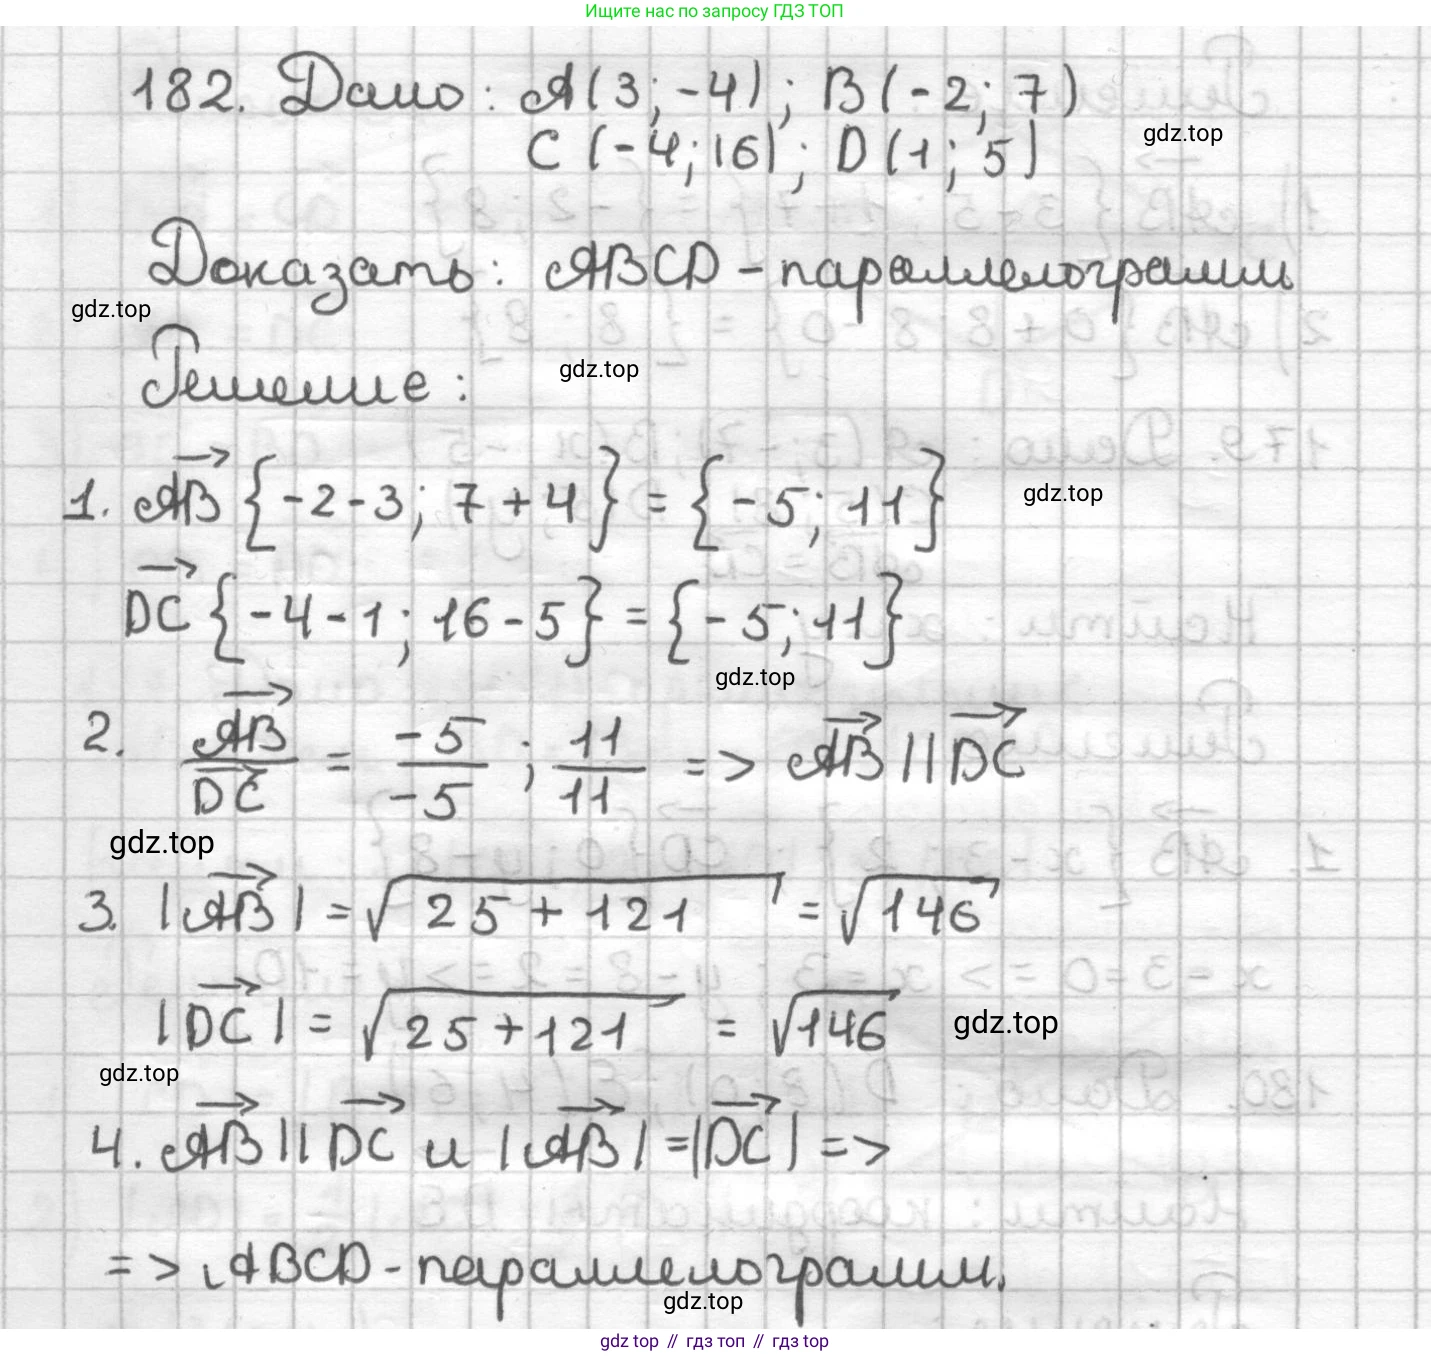 Ищите нас по запросу ГДЗ ТОП
182. Дано: A(3; -4); B(-2; 7)
C(-4; 16); D(1; 5)
gdz.top
Доказать: ABCD - параллелограмм
gdz.top
Решение:
gdz.top
1. \overrightarrow{AB} {-2-3; 7+4} = {-5; 11}
gdz.top
\overrightarrow{DC} {-4-1; 16-5} = {-5; 11}
gdz.top
2. \frac{\overrightarrow{AB}}{\overrightarrow{DC}} = \frac{-5}{-5}; \frac{11}{11} => \overrightarrow{AB} || \overrightarrow{DC}
gdz.top
3. |\overrightarrow{AB}| = \sqrt{25+121} = \sqrt{146}
|\overrightarrow{DC}| = \sqrt{25+121} = \sqrt{146}
gdz.top
gdz.top
4. \overrightarrow{AB} || \overrightarrow{DC} и |\overrightarrow{AB}| = |\overrightarrow{DC}| =>
=> ABCD - параллелограмм.
gdz.top
gdz top // гдз топ // gdz top